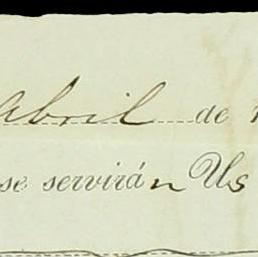 Abril de
se servirán Us